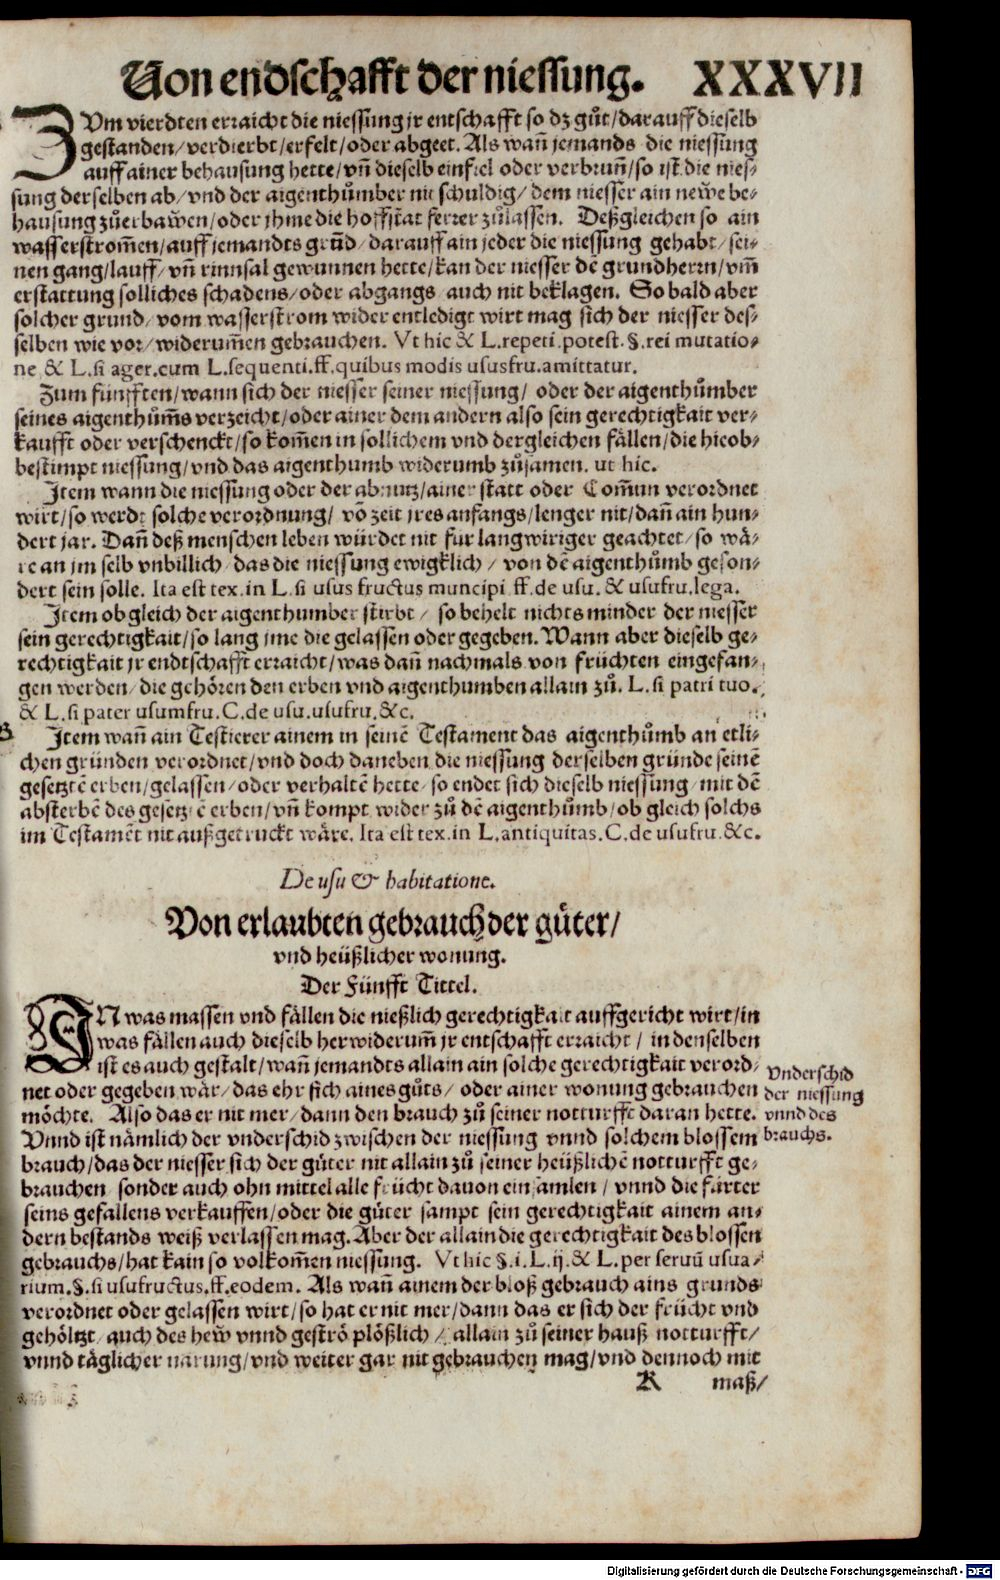 Von endschafft der niessung. XXXVII
ZVm vierdten erraicht die niessung jr entschafft so dz gůt/darauff dieselb
gestanden/verdierbt/erfelt/oder abgeet. Als wañ jemands die niessung
auff ainer behausung hette/vñ dieselb einfiel oder verbrunñ/so ist die nies-
sung derselben ab/vnd der aigenthůmber nit schuldig/dem niesser ain newe be-
hausung zůerbawen/oder jhme die hoffstat ferrer zůlassen. Deßgleichen so ain
wasserstrom̃en/auff jemandts grũd/darauff ain jeder die niessung gehabt/sei-
nen gang/lauff/vñ rinnsal gewunnen hette/kan der niesser dẽ grundherrn/vm̃
erstattung solliches schadens/oder abgangs auch nit beklagen. So bald aber
solcher grund/vom wasserstrom wider entledigt wirt mag sich der niesser des-
selben wie vor/widerum̃en gebrauchen. Vt hic & L.repeti.potest.§.rei mutatio-
ne & L.si ager.cum L.sequenti.ff.quibus modis ususfru.amittatur.
Zum fünfften/wann sich der niesser seiner niessung/ oder der aigenthůmber
seines aigenthům̃s verzeicht/oder ainer dem andern also sein gerechtigkait ver-
kaufft oder verschenckt/so kom̃en in sollichem vnd dergleichen fällen/die hieob-
bestimpt niessung/vnd das aigenthumb widerumb zůsamen. ut hic.
Item wann die niessung oder der abnutz/ainer statt oder Com̃un verordnet
wirt/so werdt solche verordnung/ võ zeit jres anfangs/lenger nit/dañ ain hun-
dert jar. Dañ deß menschen leben würdet nit für langwiriger geachtet/so wä-
re an jm selb vnbillich/das die niessung ewigklich/ von dẽ aigenthůmb geson-
dert sein solle. Ita est tex.in L.si usus fructus muncipi ff.de usu.& usufru.lega.
Item ob gleich der aigenthumber stirbt/ so behelt nichts minder der niesser
sein gerechtigkait/so lang jme die gelassen oder gegeben. Wann aber dieselb ge-
rechtigkait jr endtschafft erraicht/was dañ nachmals von früchten eingefan-
gen werden/die gehören den erben vnd aigenthumben allain zů. L.si patri tuo.
& L.si pater usumfru.C.de usu.usufru.&c.
B
Item wañ ain Testierer ainem in seinẽ Testament das aigenthůmb an etli-
chen gründen verordnet/vnd doch daneben die niessung derselben gründe seinẽ
gesetztẽ erben/gelassen/oder verhaltẽ hette/so endet sich dieselb niessung/mit dẽ
absterbẽ des gesetztẽ erben/vñ kompt wider zů dẽ aigenthůmb/ob gleich solchs
im Testamẽt nit außgetruckt wäre. Ita est tex.in L.antiquitas.C.de usufru.&c.
De usu & habitatione.
Von erlaubten gebrauch der güter/
vnd heüßlicher wonung.
Der Fünfft Tittel.
IN was massen vnd fällen die nießlich gerechtigkait auffgericht wirt/in
was fällen auch dieselb herwiderum̃ jr entschafft erraicht/ in denselben
ist es auch gestalt/wañ jemandts allain ain solche gerechtigkait verord-
net oder gegeben wär/das ehr sich aines gůts/ oder ainer wonung gebrauchen
möchte. Also das er nit mer/dann den brauch zů seiner notturfft daran hette.
Vnnd ist nämlich der vnderschid zwischen der niessung vnnd solchem blossem
brauch/das der niesser sich der güter nit allain zů seiner heüßlichẽ notturfft ge-
brauchen sonder auch ohn mittel alle frücht dauon einsamlen/ vnnd die fürter
seins gefallens verkauffen/oder die güter sampt sein gerechtigkait ainem an-
dern bestands weiß verlassen mag. Aber der allain die gerechtigkait des blossen
gebrauchs/hat kain so volkom̃en niessung. Vt hic §.i.L.ij.& L.per seruũ usua-
rium.§.si usufructus.ff.eodem. Als wañ ainem der bloß gebrauch ains grunds
verordnet oder gelassen wirt/so hat er nit mer/dann das er sich der frücht vnd
gehöltzt/auch des hew vnnd geströ plößlich/ allain zů seiner hauß notturfft/
vnnd täglicher narung/vnd weiter gar nit gebrauchen mag/vnd dennoch mit
K maß/
Vnderschid
der niessung
vnnd des
brauchs.
Digitalisierung gefördert durch die Deutsche Forschungsgemeinschaft - DFG